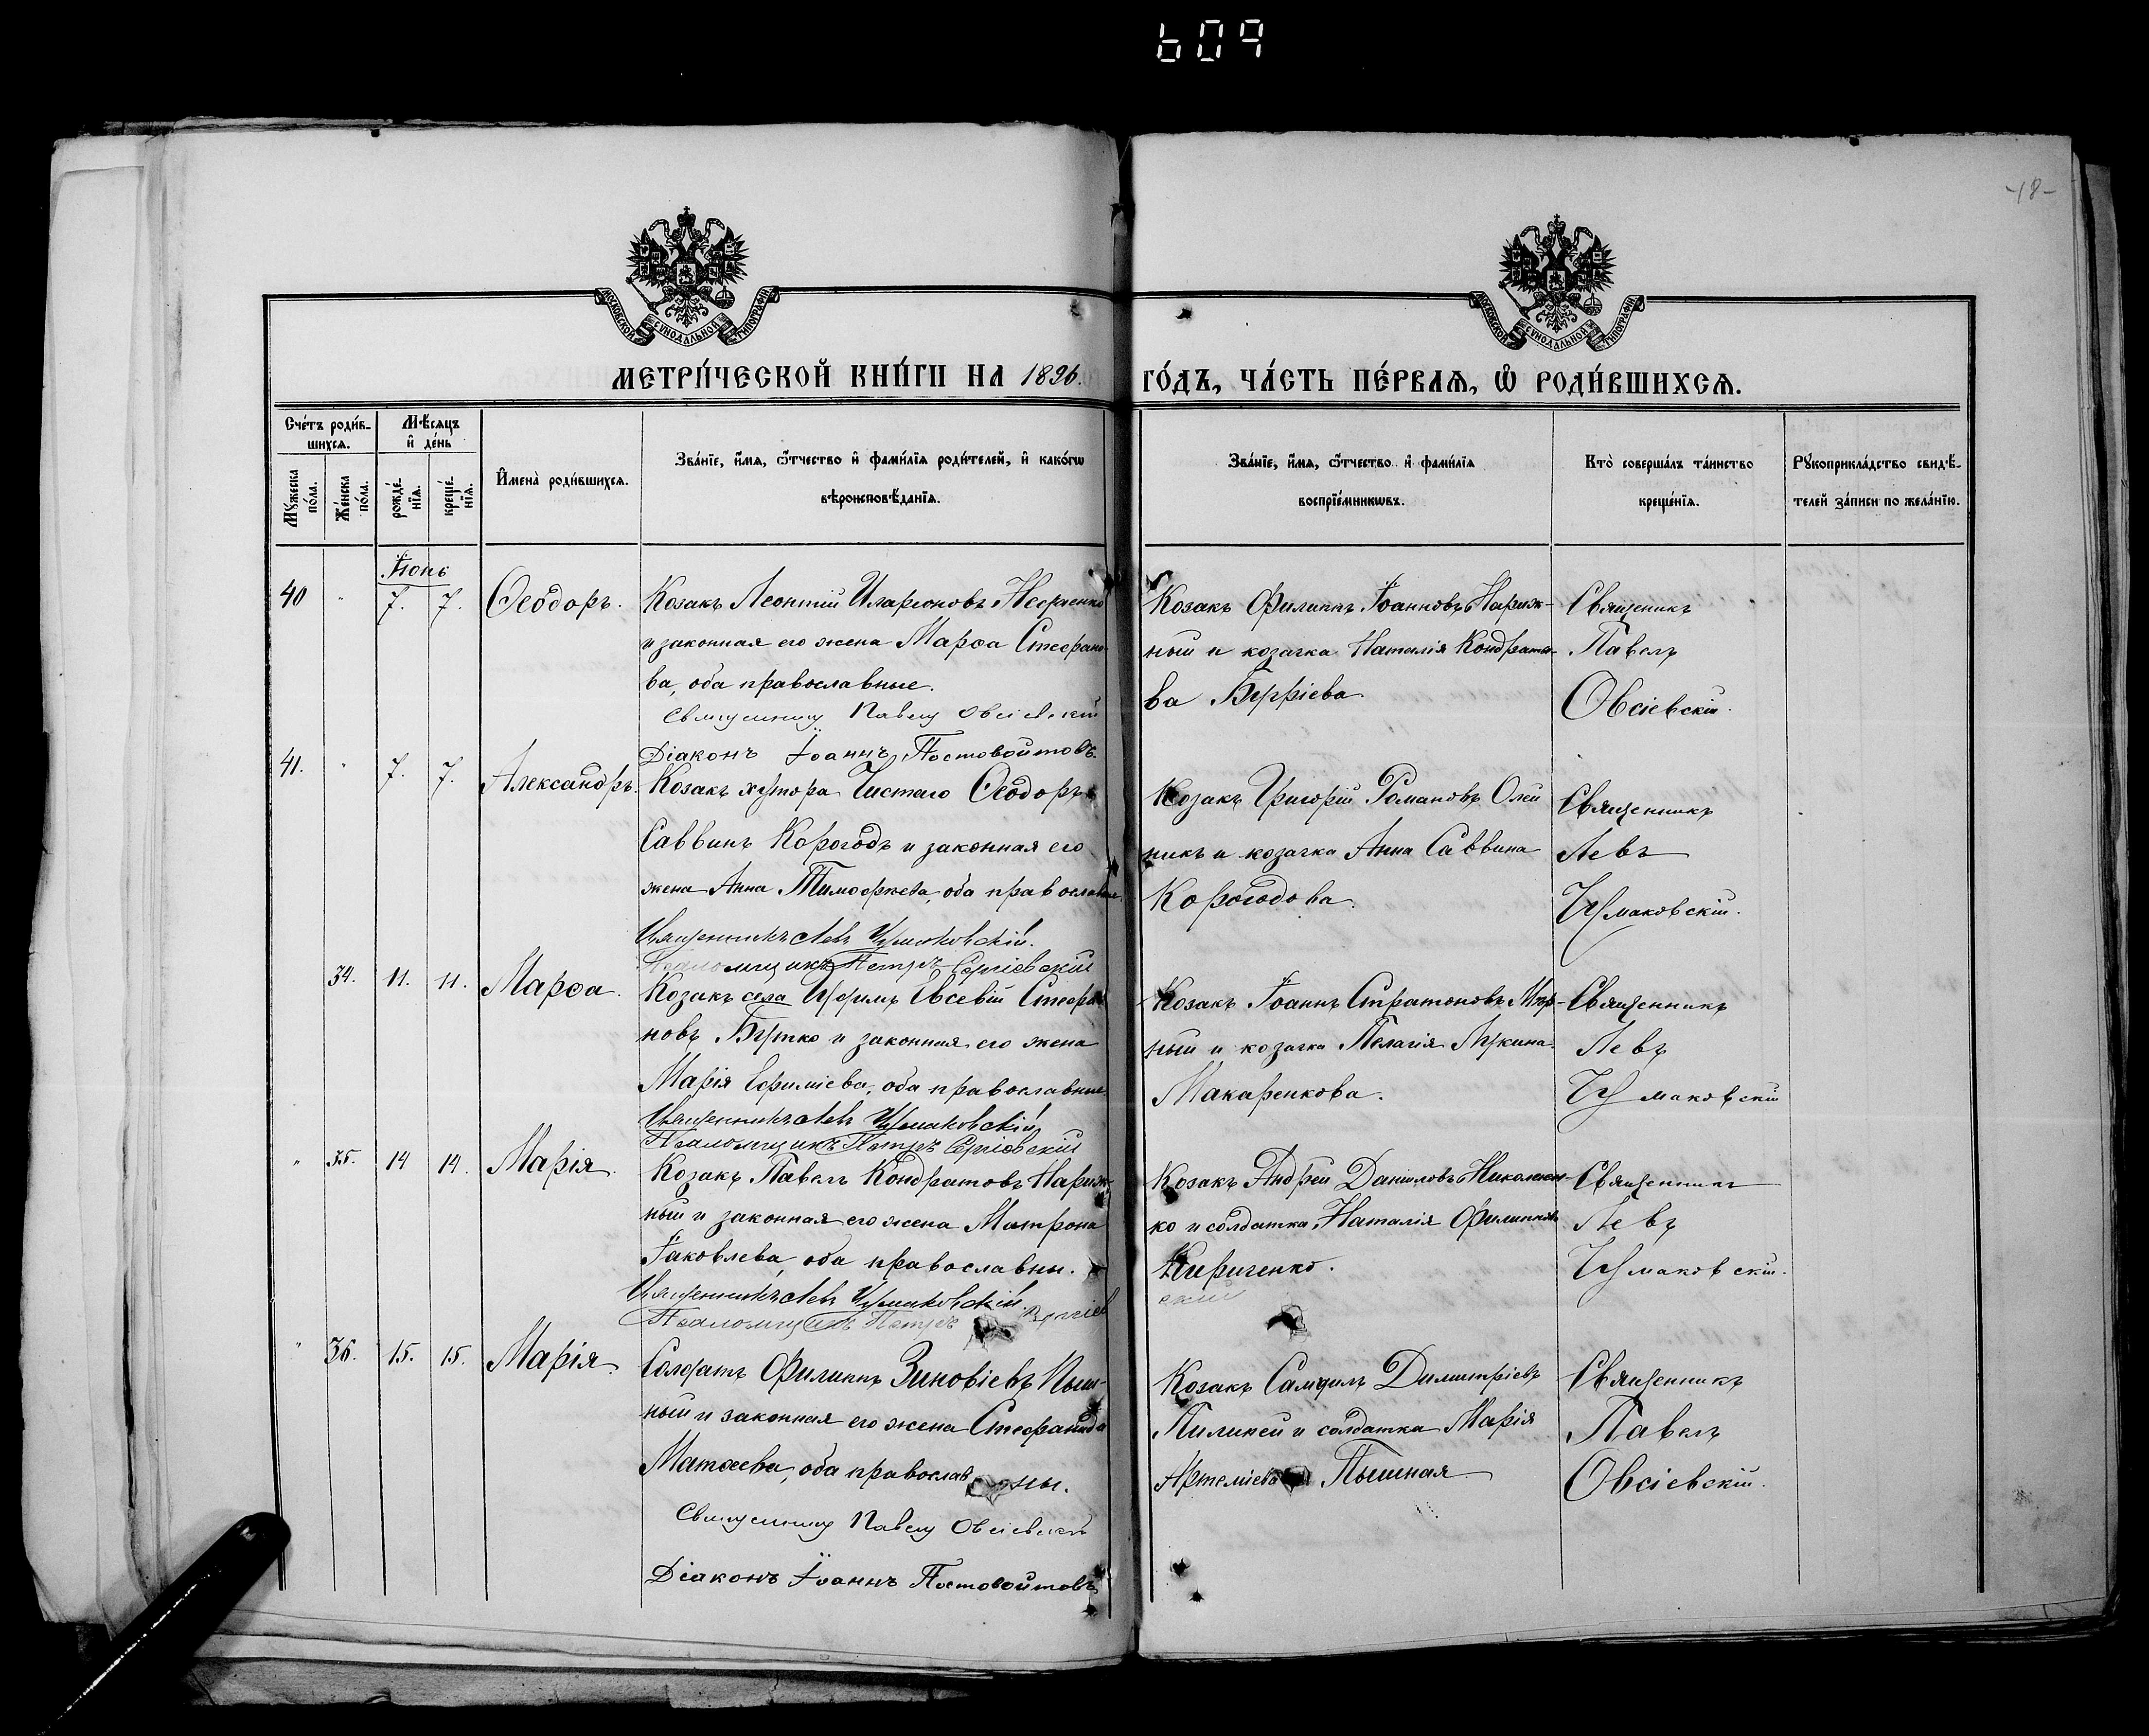 609
-18-
МОСКОВСКОЙ СѴНОДАЛЬНОЙ ТИПОГРАФІИ
МОСКОВСКОЙ СѴНОДАЛЬНОЙ ТИПОГРАФІИ
МЕТРИ́ЧЕСКОЙ КНИ́ГИ НА 1896.
ГО́ДЪ, ЧА́СТЬ ПЕ́РВАѦ, Ѡ҆ РОДИ́ВШИХСѦ.
Сче́тъ роди́в-
шихсѧ.
Мꙋжеска по́ла.
Же́нска по́ла.
Мѣ́сѧцъ
и҆ де́нь
рожде́-
нїѧ.
креще́-
нїѧ.
И҆мена̀ роди́вшихсѧ.
Зва́нїе, и҆́мѧ, ѻ҆́тчество и҆ фами́лїѧ роди́телей, и҆ како́гѡ
вѣроисповѣ́данїѧ.
Зва́нїе, и҆́мѧ, ѻ҆́тчество и҆ фами́лїѧ
воспрїе́мникѡвъ.
Кто̀ соверша́лъ та́инство
креще́нїѧ.
Рꙋкоприкла́дство свидѣ́-
телей за́писи по жела́нїю.
Іюнь
40 " 7. 7. Ѳеодоръ.
Козакъ Леонтій Иларіоновъ
и законная его жена Марѳа Стефано
ва, оба православные.
Священникъ Павелъ Овсіевскій
Діаконъ Іоаннъ Постовойтовъ.
Козакъ Филиппъ Іоанновъ Нариж-
ный и козачка Наталія Кондрать-
ва
Священикъ
Павелъ
Овсіевскій.
41. " 7. 7. Александръ.
Козакъ хутора Чистаго Ѳеодоръ
Саввинъ Корогодъ и законная его
жена Анна Тимофѣева, оба православные
Священникъ Левъ Чумаковскій.
Псаломщикъ Петръ Сергіевскій
Козакъ Григорій Романовъ Олей
никъ и козачка Анна Саввина
Корогодова.
Священникъ
Левъ
Чумаковскій.
34. 11. 11. Марѳа.
Козакъ села Евсевій Стефа
новъ Бутко и законная его жена
Марія Ефиміева, оба православные
Священникъ Левъ Чумаковскій
Псаломщикъ Петръ Сергіевскій
Козакъ Іоаннъ Стратоновъ Мир-
ный и козачка Пелагія Лукина
Макаренкова.
Священникъ
Левъ
Чумаковскій
" 35. 14 14. Марія.
Козакъ Павелъ Кондратовъ Нариж-
ный и законная его жена Матрона
Іаковлева, оба православны.
Священникъ Левъ Чумаковскій
Псаломщикъ Петръ Сергіев
ский
Козакъ Андрей Даніиловъ Николаен-
ко и солдатка Наталія Филиппова
Кириченко.
Священникъ
Левъ
Чумаковскій.
" 36. 15. 15. Марія.
Солдатъ Филиппъ Зиновіевъ Пыш-
ный и законная его жена Стефанида
Матѳеева, оба православны.
Священникъ Павелъ Овсіевскій
Діаконъ Іоаннъ Постовойтовъ
Козакъ Самуилъ Димитріевъ
Пилипей и солдатка Марія
Артеміева Пышная
Священникъ
Павелъ
Овсіевскій.